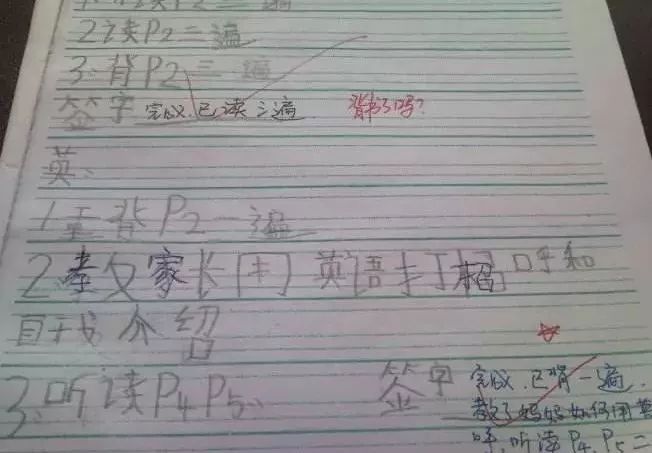 读P2二遍
2读P2二遍
3.背P2三遍
签字 完成.已读三遍 背书了吗?
英:
1.重背P2一遍
2.教父家长用英语打招呼和
自我介绍
3.听读P4P5. 签字 完成.已背一遍.
教了妈妈如何用英
呼,听读P4.P5二